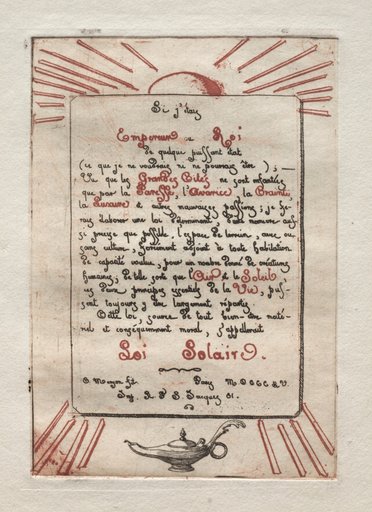 Si j'étais
Empereur ou Roi
de quelque puissant état
(ce que je ne voudrais ni ne pourrais être); —
Vu que les Grandes Cités ne sont enfantées
que par la Paresse, l'Avarice, la Crainte,
la Luxure et autres mauvaises passions; je fe-
rais élaborer une loi déterminant, d'une manière aus-
si précise que possible, l'espace de terrain, avec ou
sans culture, forcément adjoint à toute habitation
de capacité voulue, pour un nombre donné de créatures
humaines; de telle sorte que l'Air et le Soleil
ces deux principes essentiels de la Vie, puis-
sent toujours y être largement répartis.
Cette loi, source de tout bien-être maté-
riel et conséquemment moral, s'appellerait
Loi Solaire.
C. Meryon ft. Paris
Imp. R. St Jacques 81.